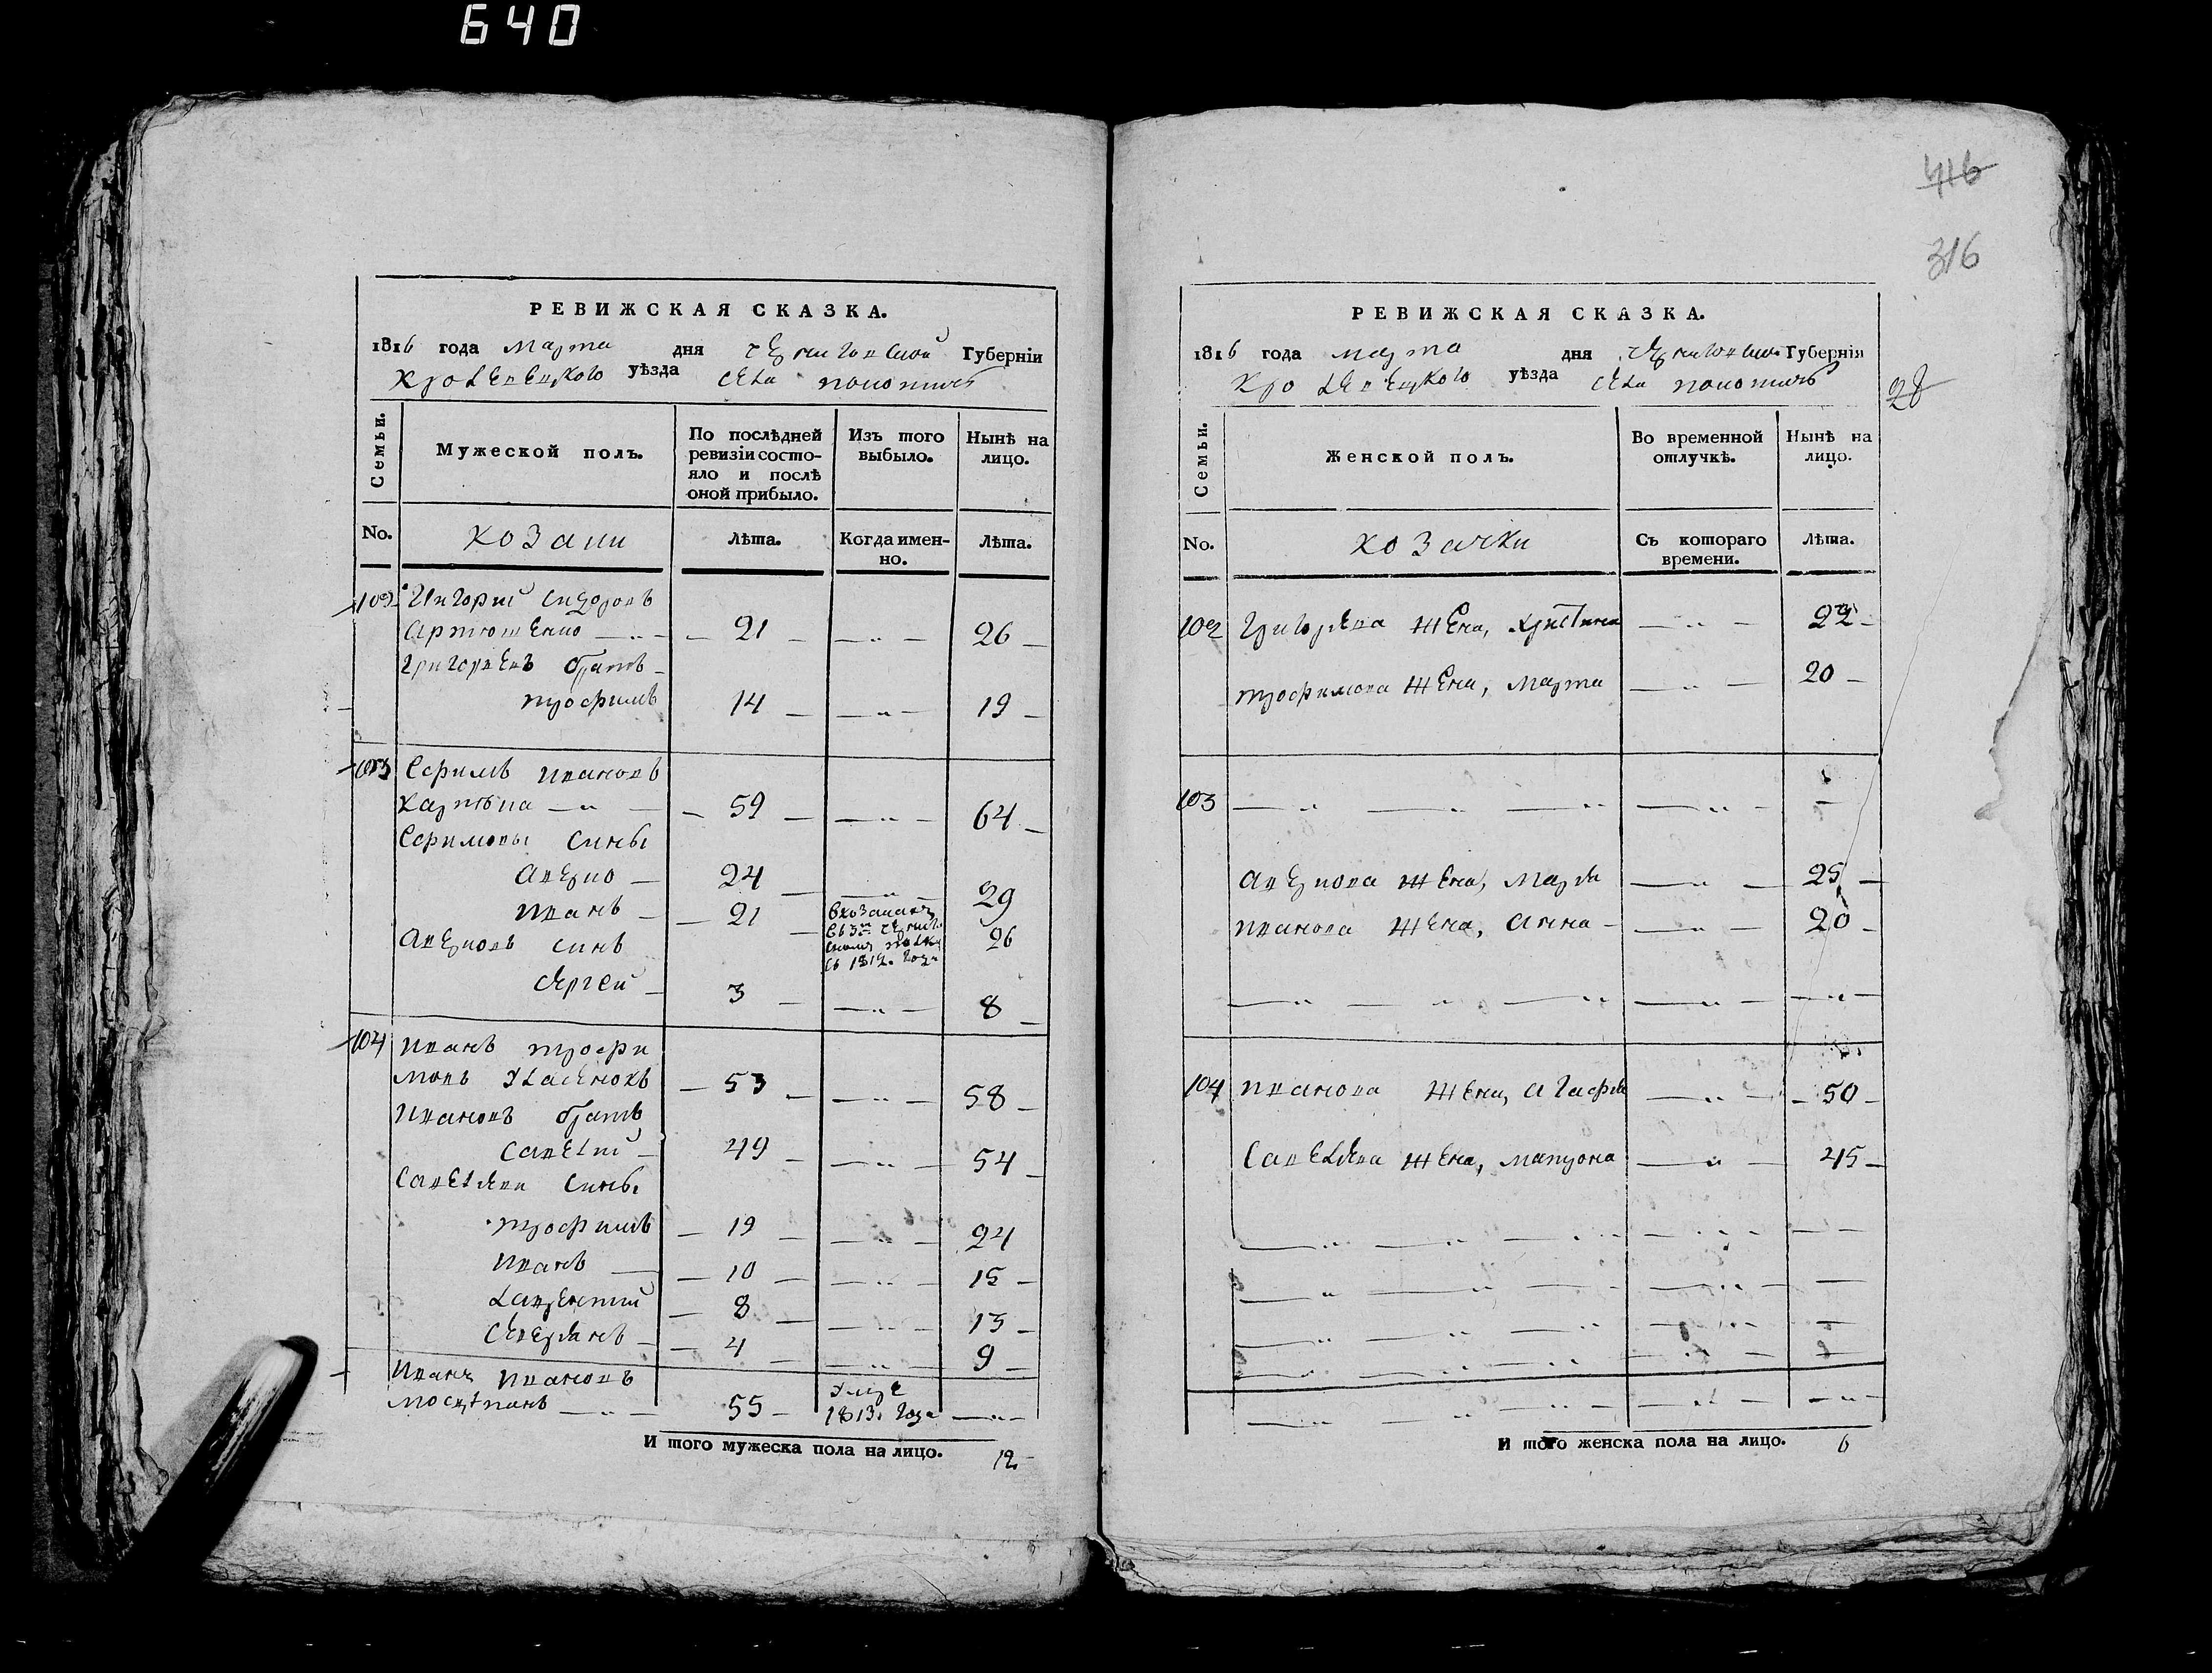 640
РЕВИЖСКАЯ СКАЗКА.
1816 года марта дня Черниговской Губернїи
Кролевецкого уѣзда села
Семьи.
Мужеской полъ.
По послѣдней ревизїи состо-
яло и послѣ
оной прибыло.
Изъ того
выбыло.
Нынѣ на
лицо.
No.
козаки
лѣта.
Когда имен-
но.
лѣта.
102 Григорий Сидоровъ
Артюшенко 21 26
Григориевъ братъ
трофимъ 14 19
103 Ефимъ Ивановъ
59 64
Ефимовы сины
Аверко 24 29
Иванъ 21 в козаках в 3м Чернигв. полку с 1812. года 26
Аверковъ синъ
Сергей 3 8
104 Иванъ трофи
мовъ 53 58
Ивановъ братъ
Савелий 49 54
Савелиеви сины
трофимъ 19 24
Иванъ 10 15
Лаврентий 8 13
Севериянъ 4 9
Иванъ Ивановъ
55 умре 1813. года
И того мужеска пола на лицо. 12
416
316
28
РЕВИЖСКАЯ СКАЗКА.
1816 года марта дня Черниговско. Губернїя
Кролевецкого уѣзда села
Семьи.
Женской полъ.
Во временной
отлучкѣ.
Нынѣ на
лицо.
No.
козачки
Съ котораго
времени.
лѣта.
102 Григориева жена, Христина 22
трофимова жена, Марта 20
103
Аверкова жена, Мария 25
Иванова жена, Анна 20
104 Иванова жена, Агафия 50
Савелиева жена, Матрона 45
И того женска пола на лицо. 6